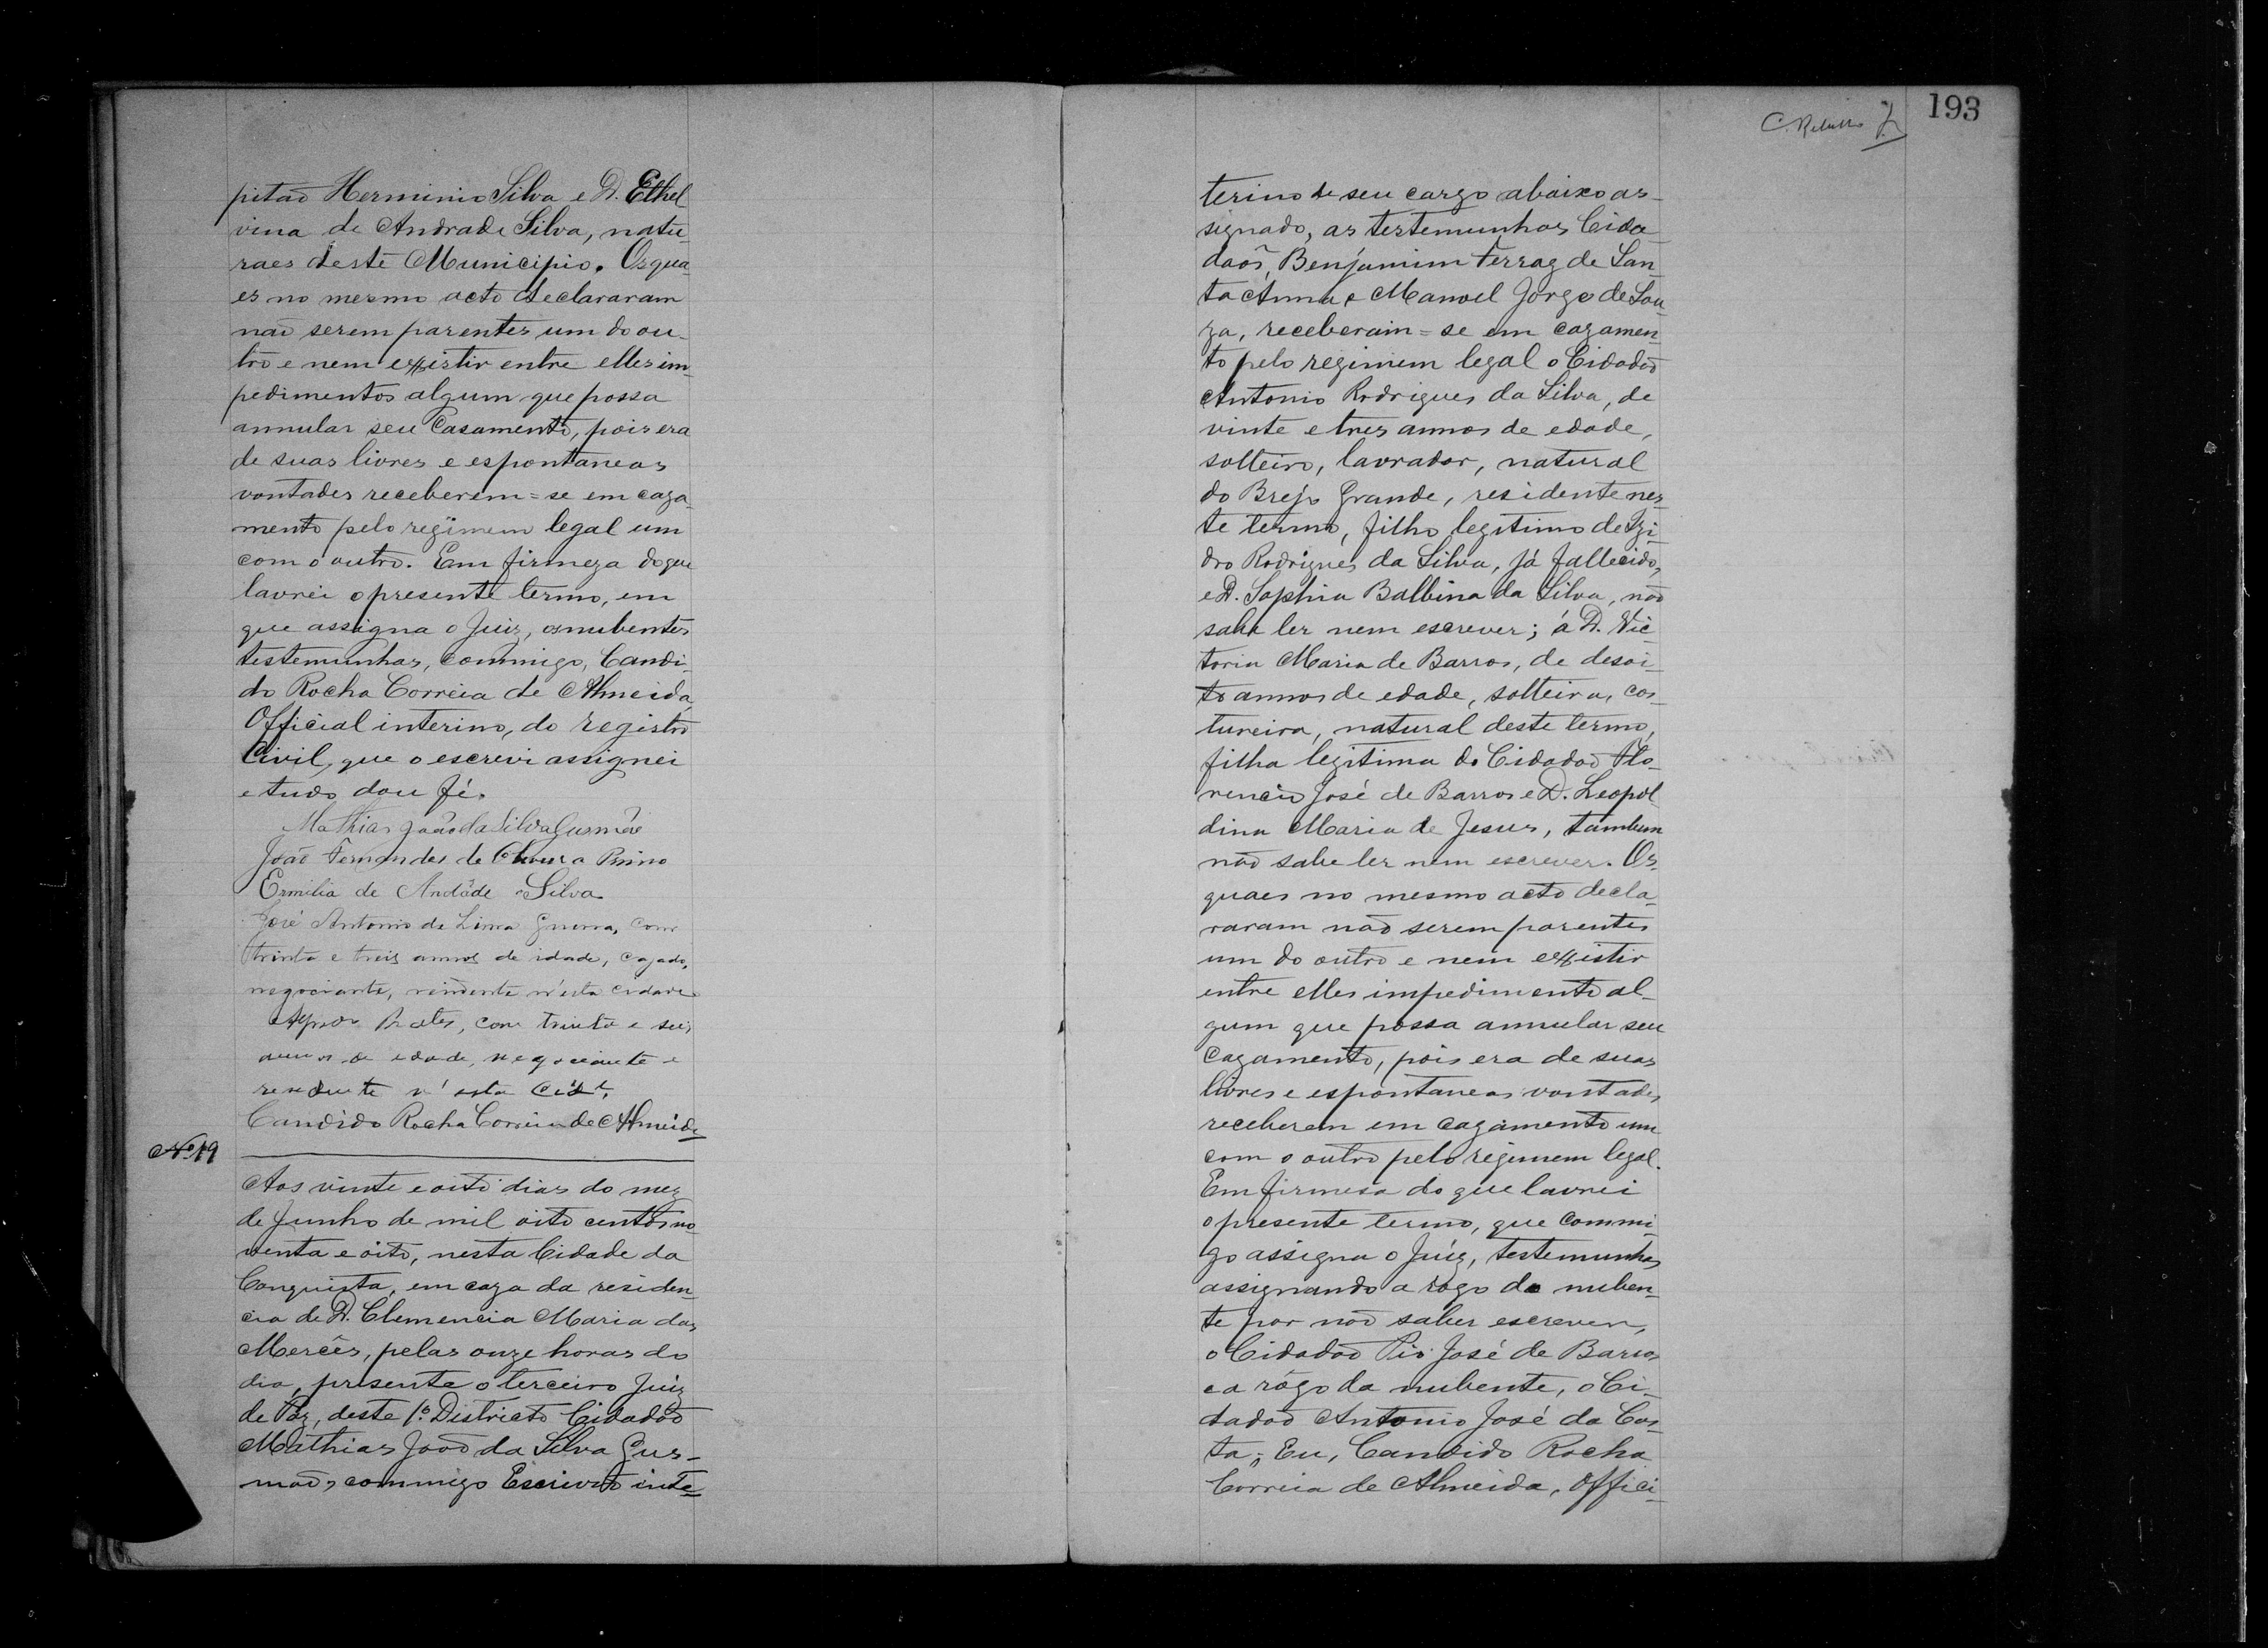 pitaõ Herminio Silva e D. Ethel
vina de Andrade Silva, natu-
raes deste Municipio. Os qua-
es no mesmo acto declararam
naõ serem parentes um do ou-
tro e nem existir entre elles im-
pedimentos algum que possa
annular seu Casamento, pois era
de suas livres e espontaneas
vontades receberem=se em caza-
mento pelo regimem legal um
com o outro. Em firmeza do que
lavrei o presente termo, em
que assigna o Juiz, os nubentes
testemunhas, commigo, Candi-
do Rocha Correia de Almeida
Official interino, do registro
Civil, que o escrevi assignei
e tudo dou fé.
Mathias João da Silva Gusmão
João Fernandes de Oliveira Primo
Ermilia de Andade Silva
José Antonio de Lima Guerra, com
trinta e treis annos de idade, cazado,
negociante, residente n'esta cidade
Prates, com trinta e seis
annos de edade, negociante e
residente n'esta Cide.
Candido Rocha Correia de Almeida
Nº 19
Aos vinte e oito dias do mez
de Junho de mil oito centos no-
venta e oito, nesta Cidade da
Conquista, em caza da residen-
cia de D. Clemencia Maria das
Mercês, pelas onze horas do
dia, presente o terceiro Juiz
de Paz, deste 1º Districto Cidadaõ
Mathias Joaõ da Silva Gus-
maõ, commigo Escrivaõ inte-
193
terino de seu cargo abaixo as-
signado, as testemunhas Cida-
daõs, Benjamim Ferraz de San-
ta Anna e Manoel Jorge de Sou-
za, receberam=se em cazamen-
to pelo regimem legal o Cidadaõ
Antonio Rodrigues da Silva, de
vinte e tres annos de edade,
solteiro, lavrador, natural
do Brejo Grande, residente nes-
te termo, filho legitimo de Izi-
dro Rodrigues da Silva, já fallecido,
e D. Sophia Balbina da Silva, naõ
sabe ler nem escrever; á D. Vic-
toria Maria de Barros, de desoi-
to annos de edade, solteira, cos-
tureira, natural deste termo,
filha legitima do Cidadaõ Flo-
rencio José de Barros e D. Leopol-
dina Maria de Jesus, tambem
naõ sabe ler nem escrever. Os
quaes no mesmo acto decla-
raram naõ serem parentes
um do outro e nem existir
entre elles impedimento al-
gum que possa annular seu
Cazamento, pois era de suas
livres e espontaneas vontades
receberem em cazamento um
com o outro pelo regimem legal.
Em firmesa do que lavrei
o presente termo, que commi-
go assigna o Juiz, testemunhas
assignando a rogo do nuben-
te por naõ saber escrever,
o Cidadaõ Pio José de Barros
e a rógo da nubente, o Ci-
dadaõ Antonio José da Cos-
ta; Eu, Candido Rocha
Correia de Almeida, Offici-